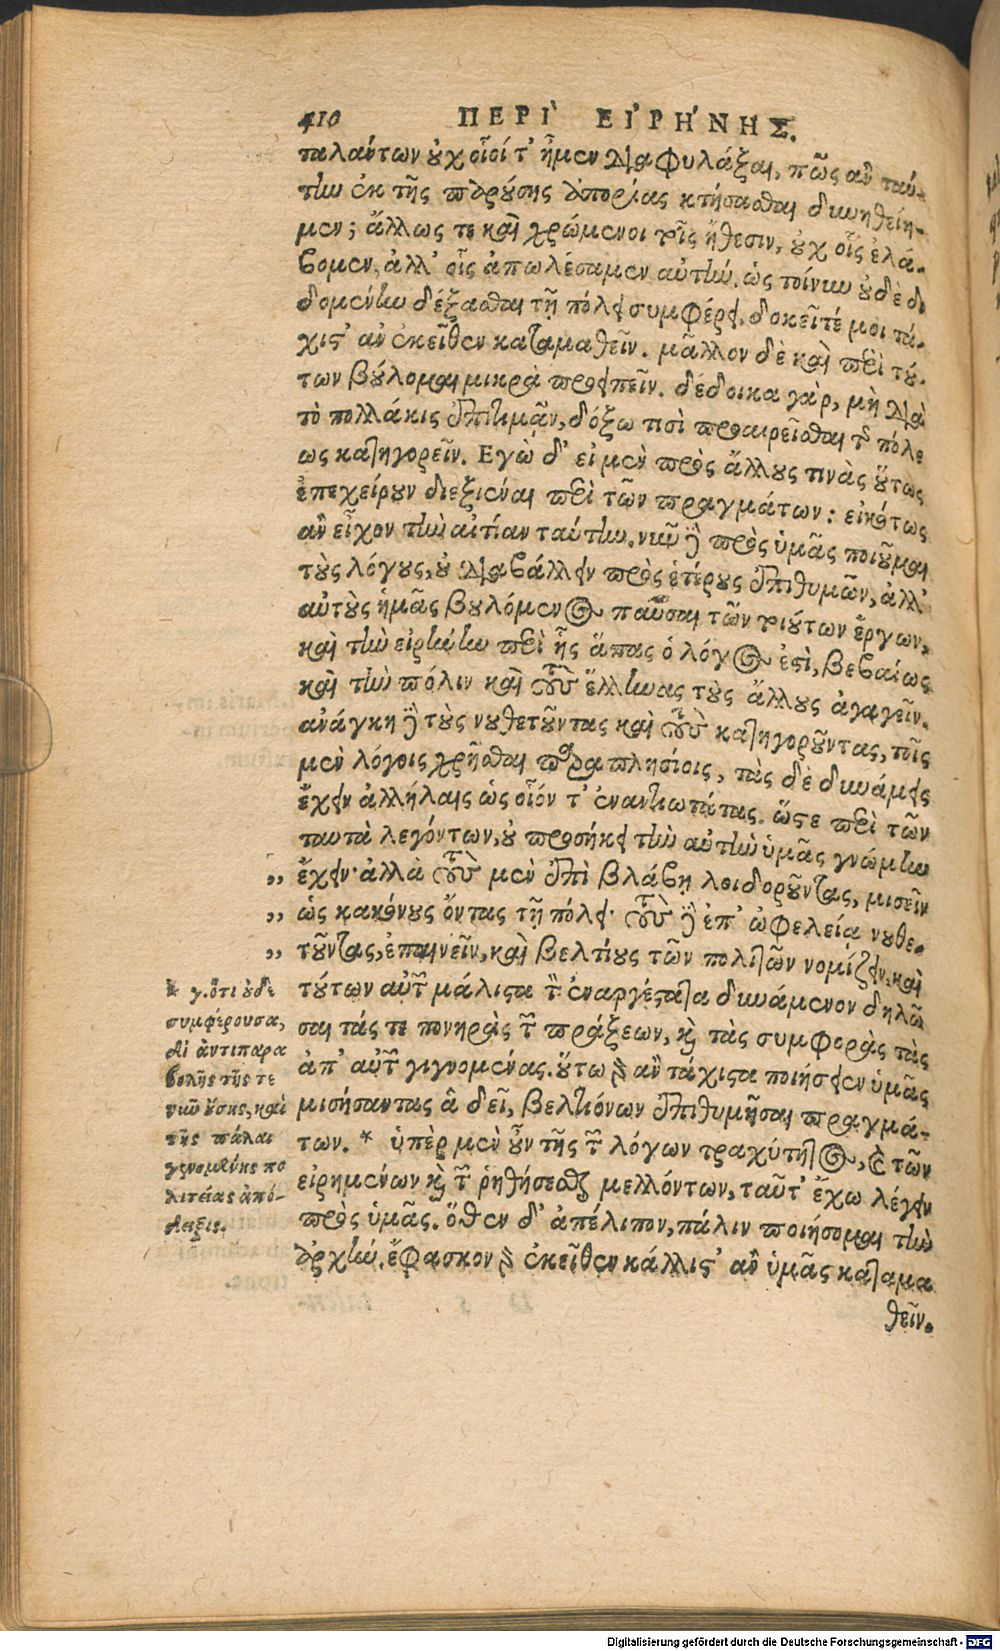 410 ΠΕΡῚ ΕἸΡΉΝΗΣ.
ταλάντων οὐχ οἷοί τ' ἦμεν διαφυλάξαι, πῶς ἂν ταύ-
την ἐκ τῆς παρούσης ἀπορίας κτήσασθαι δυνηθείη-
μεν; ἄλλως τε καὶ χρώμενοι τοῖς ἤθεσιν, οὐχ οἷς ἐλά-
βομεν, ἀλλ' οἷς ἀπωλέσαμεν αὐτήν. ὡς τοίνυν οὐδὲ δι
δομένην δέξασθαι τῇ πόλει συμφέρει, δοκεῖτέ μοι τά-
χιστ' ἂν ἐκεῖθεν καταμαθεῖν. μᾶλλον δὲ καὶ περὶ τού-
των βούλομαι μικρὰ προειπεῖν. δέδοικα γὰρ, μὴ διὰ
τὸ πολλάκις ἐπιτιμᾷν, δόξω τισὶ προαιρεῖσθαι τῆς πόλε
ως κατηγορεῖν. Εγὼ δ' εἰ μὲν πρὸς ἄλλους τινὰς οὕτως
ἐπεχείρουν διεξιέναι περὶ τῶν πραγμάτων: εἰκότως
ἂν εἶχον τὴν αἰτίαν ταύτην. νῦν δὲ πρὸς ὑμᾶς ποιοῦμαι
τοὺς λόγους, οὐ διαβάλλειν πρὸς ἑτέρους ἐπιθυμῶν, ἀλλ'
αὐτοὺς ἡμᾶς βουλόμενος παῦσαι τῶν τοιούτων ἔργων,
καὶ τὴν εἰρήνην περὶ ἧς ἅπας ὁ λόγος ἐστὶ, βεβαίως
καὶ τὴν πόλιν καὶ τοὺς ἕλληνας τοὺς ἄλλους ἀγαγεῖν.
ἀνάγκη δὲ τοὺς νουθετοῦντας καὶ τοὺς κατηγοροῦντας, τοῖς
μὲν λόγοις χρῆσθαι παραπλησίοις, τὰς δὲ δυνάμεις
ἔχειν ἀλλήλαις ὡς οἷόν τ' ἐναντιωτάτας. ὥστε περὶ τῶν
ταυτὰ λεγόντων, οὐ προσήκει τὴν αὐτὴν ὑμᾶς γνώμην
„ ἔχειν· ἀλλὰ τοὺς μὲν ἐπὶ βλάβῃ λοιδοροῦντας, μισεῖν
„ ὡς κακόνους ὄντας τῇ πόλει· τοὺς δὲ ἐπ' ὠφελείᾳ νουθε-
„ τοῦντας, ἐπαινεῖν, καὶ βελτίους τῶν πολιτῶν νομίζειν, καὶ
τούτων αὐτῶν μάλιστα τὸν ἐναργέστατα δυνάμενον δηλῶ
σαι τάς τε πονηρὰς τῶν πράξεων, καὶ τὰς συμφορὰς τὰς
ἀπ' αὐτῶν γιγνομένας. οὕτω γὰρ ἂν τάχιστα ποιήσειεν ὑμᾶς
μισήσαντας ἃ δεῖ, βελτιόνων ἐπιθυμῆσαι πραγμά-
των. * ὑπὲρ μὲν οὖν τῆς τῶν λόγων τραχύτητος, καὶ τῶν
εἰρημένων καὶ τῶν ῥηθήσεσθαι μελλόντων, ταῦτ' ἔχω λέγειν
πρὸς ὑμᾶς. ὅθεν δ' ἀπέλιπον, πάλιν ποιήσομαι τὴν
ἀρχήν. ἔφασκον γὰρ ἐκεῖθεν κάλλιστ' ἂν ὑμᾶς καταμα
θεῖν.
* γ. ὅτι οὐδὲ
συμφέρουσα,
δι ἀντιπαρα
βολῆς τῆς τε
νῦν οὔσης, καὶ
τῆς πάλαι
γενομένης πο
λιτείας ἀπό-
δειξις.
Digitalisierung gefördert durch die Deutsche Forschungsgemeinschaft - DFG